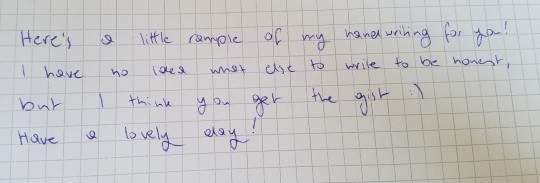 Here's a little sample of my handwriting for you!
I have no idea what else to write to be honest,
but I think you get the gist :)
Have a lovely day!